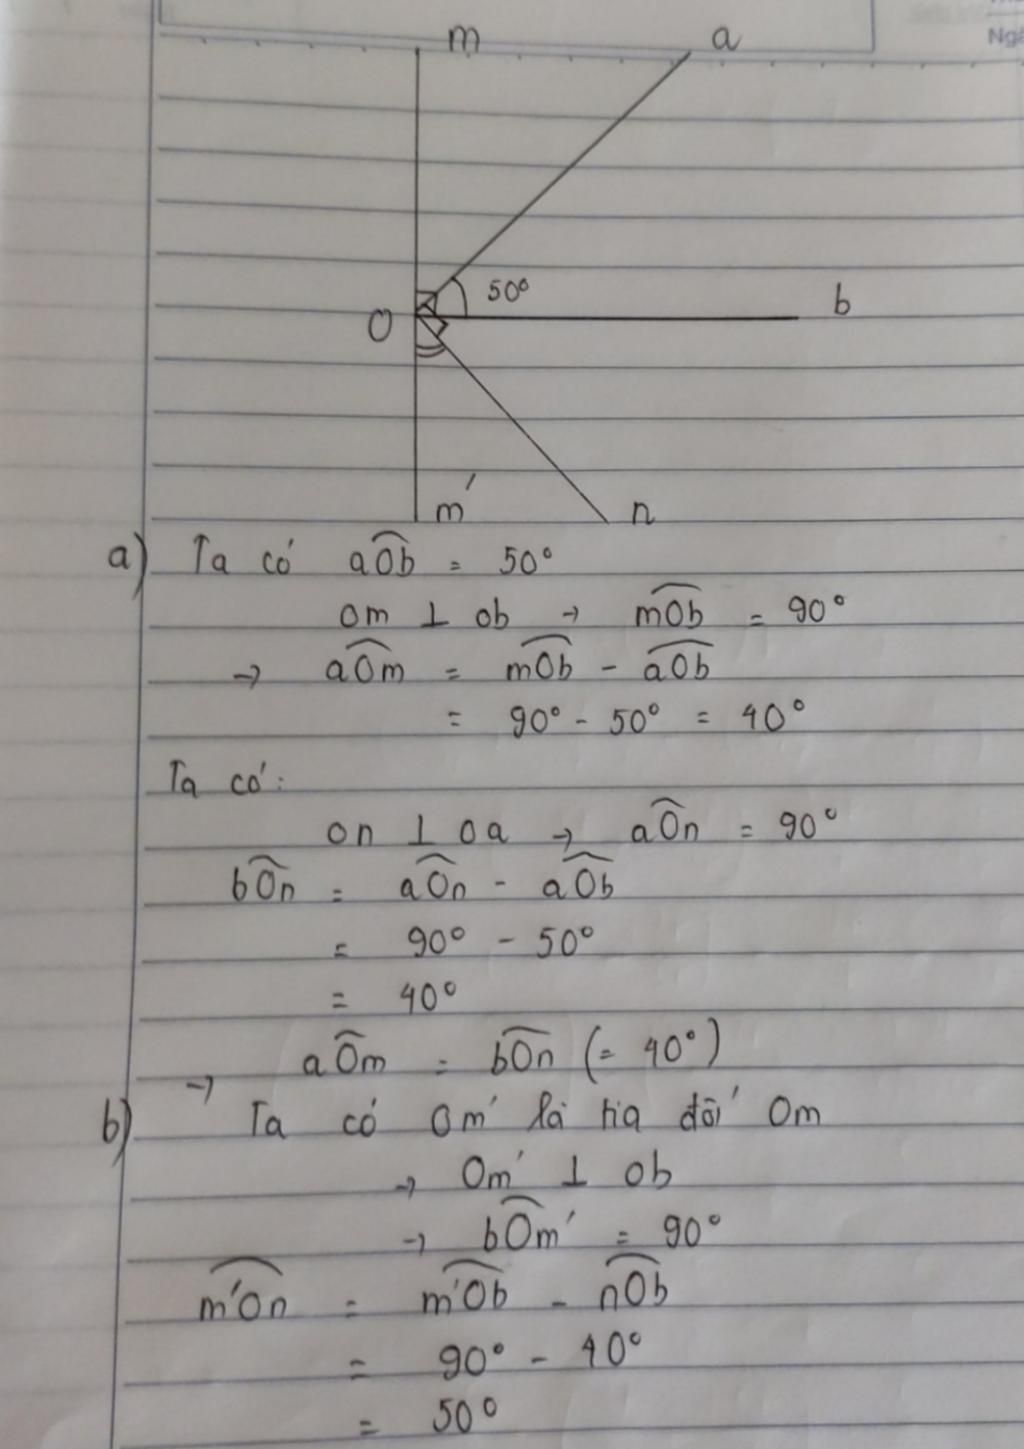 Ngà
m
a
50°
b
O
m'
n
a) Ta có aOb = 50°
Om ⊥ Ob → mOb = 90°
→ aOm = mOb - aOb
= 90° - 50° = 40°
Ta có:
On ⊥ Oa → aOn = 90°
bOn = aOn - aOb
= 90° - 50°
= 40°
→ aOm = bOn (= 40°)
b) Ta có Om' là tia đối Om
→ Om' ⊥ Ob
→ bOm' = 90°
m'On = m'Ob - nOb
= 90° - 40°
= 50°